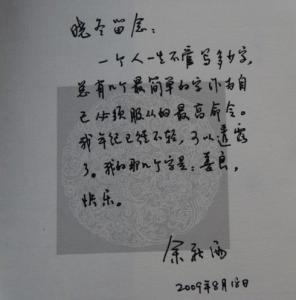 晓冬留念：
一个人一生不管写多少字，
总有几个最简单的字作为自
己必须服从的最高命令。
我年纪已经不轻，可以透露
了。我的那几个字是：善良，
快乐。
余秋雨
2009年8月18日